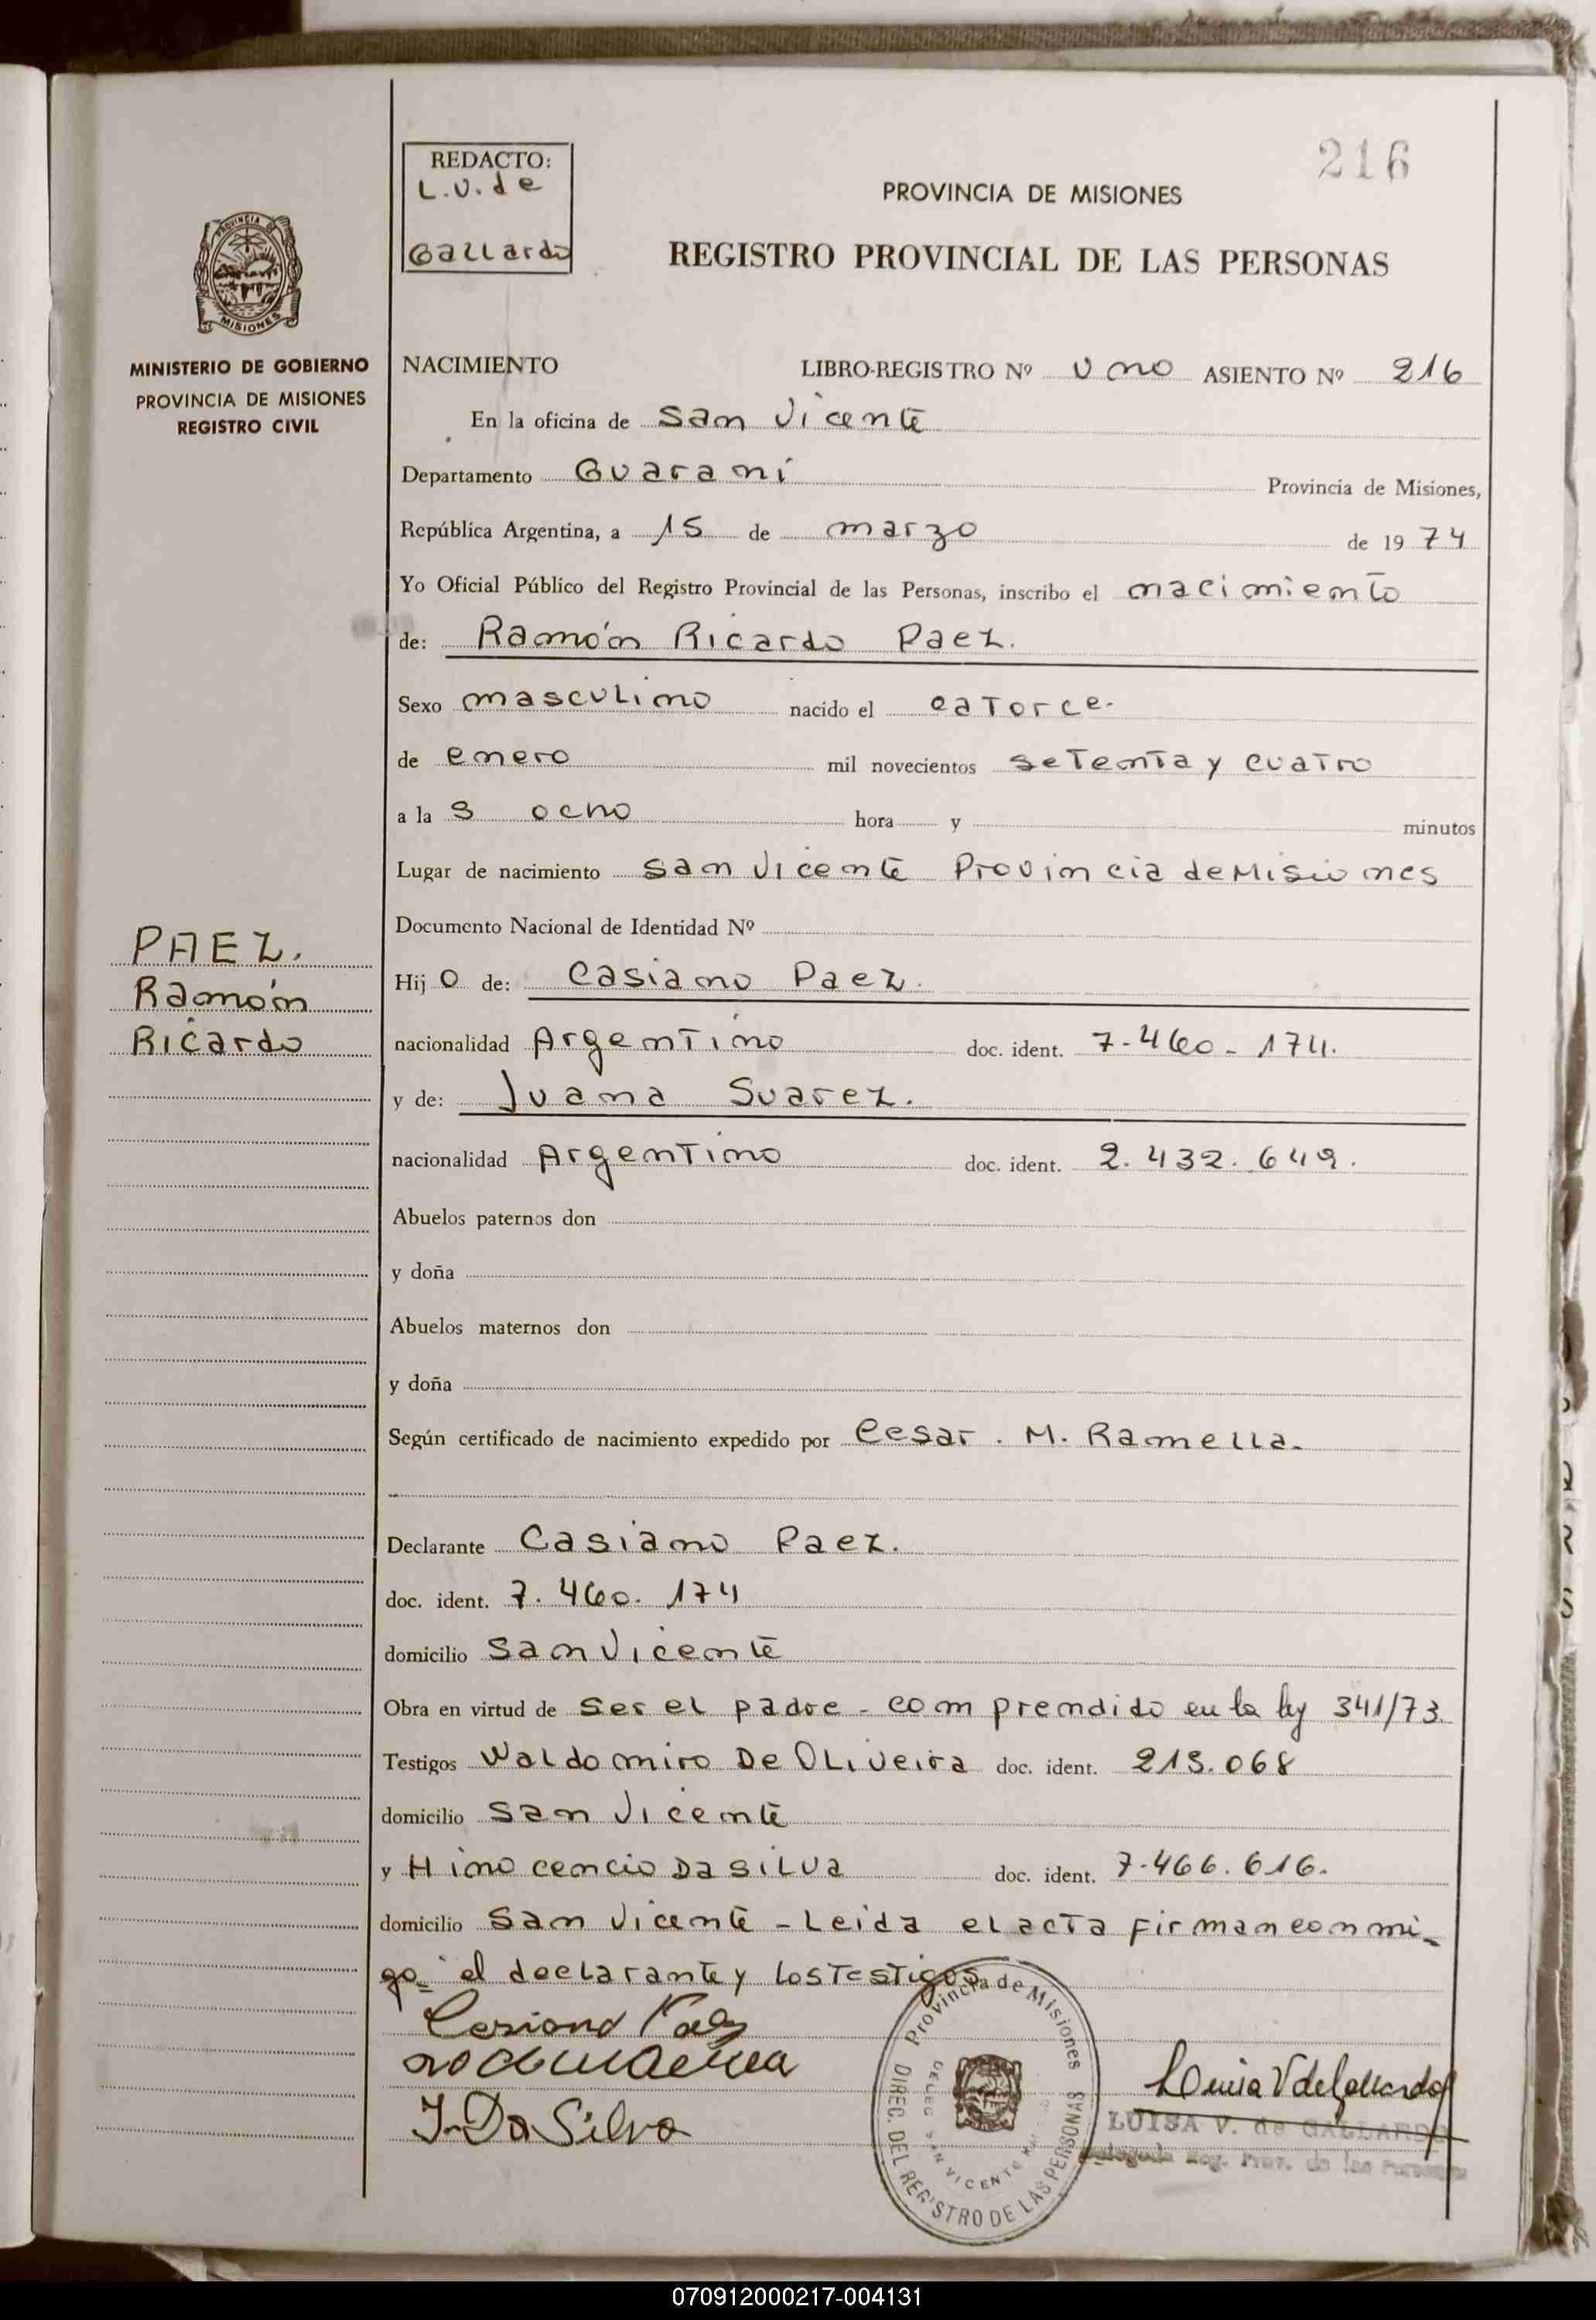 216
REDACTO:
L.V.de
Gallardo
PROVINCIA DE MISIONES
REGISTRO PROVINCIAL DE LAS PERSONAS
PROVINCIA DE
MISIONES
MINISTERIO DE GOBIERNO
PROVINCIA DE MISIONES
REGISTRO CIVIL
NACIMIENTO LIBRO-REGISTRO Nº Uno ASIENTO Nº 216
En la oficina de San Vicente
Departamento Guaraní Provincia de Misiones,
República Argentina, a 15 de marzo de 1974
Yo Oficial Público del Registro Provincial de las Personas, inscribo el nacimiento
de: Ramón Ricardo Paez.
Sexo masculino nacido el catorce.
de enero mil novecientos setenta y cuatro
a la s ocho hora y minutos
Lugar de nacimiento San Vicente Provincia de Misiones
Documento Nacional de Identidad Nº
PAEZ.
Ramón
Ricardo
Hijo de: Casiano Paez.
nacionalidad Argentino doc. ident. 7-460-174.
y de: Juana Suarez.
nacionalidad Argentino doc. ident. 2.432.649.
Abuelos paternos don
y doña
Abuelos maternos don
y doña
Según certificado de nacimiento expedido por Cesar. M. Ramella.
Declarante Casiano Paez.
doc. ident. 7.460.174
domicilio San Vicente
Obra en virtud de ser el padre - comprendido en la ley 341/73.
Testigos Waldomiro De Oliveira doc. ident. 213.068
domicilio San Vicente
y Hinocencio Da Silva doc. ident. 7-466.616.
domicilio San Vicente - Leida el acta firman conmi-
go= el declarante y los testigos
Casiano Paez
J-Da Silva
Provincia de Misiones
DIREC. DEL REGISTRO DE LAS PERSONAS
DELEG. SAN VICENTE
Luisa V de Gallardo
LUISA V. de GALLARDO
Delegada Reg. Prov. de las Personas
070912000217-004131